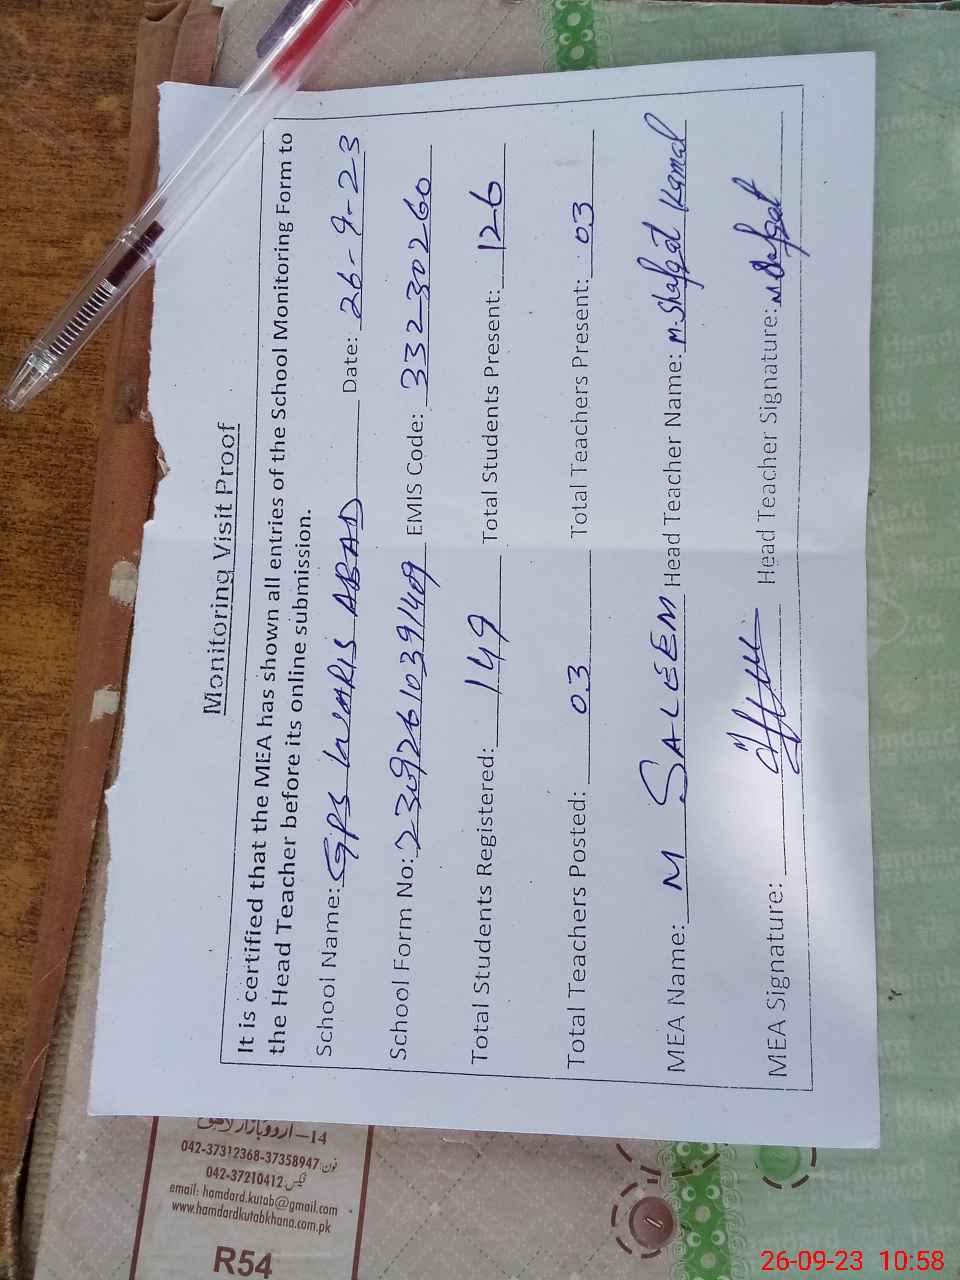 Monitoring Visit Proof
It is certified that the MEA has shown all entries of the School Monitoring Form to
the Head Teacher before its online submission.
School Name: GPS WARIS ABAD Date: 26-9-23
School Form No: 23092610391409 EMIS Code: 33230260
Total Students Registered: 149 Total Students Present: 126
Total Teachers Posted: 03 Total Teachers Present: 03
MEA Name: M SALEEM Head Teacher Name: M. Shafqat Kamal
MEA Signature: Head Teacher Signature: M Shafqat
14–اردو بازار لاہور
فون: 042-37312368-37358947
فیکس: 042-37210412
email: hamdard.kutab@gmail.com
www.hamdardkutabkhana.com.pk
R54
26-09-23 10:58